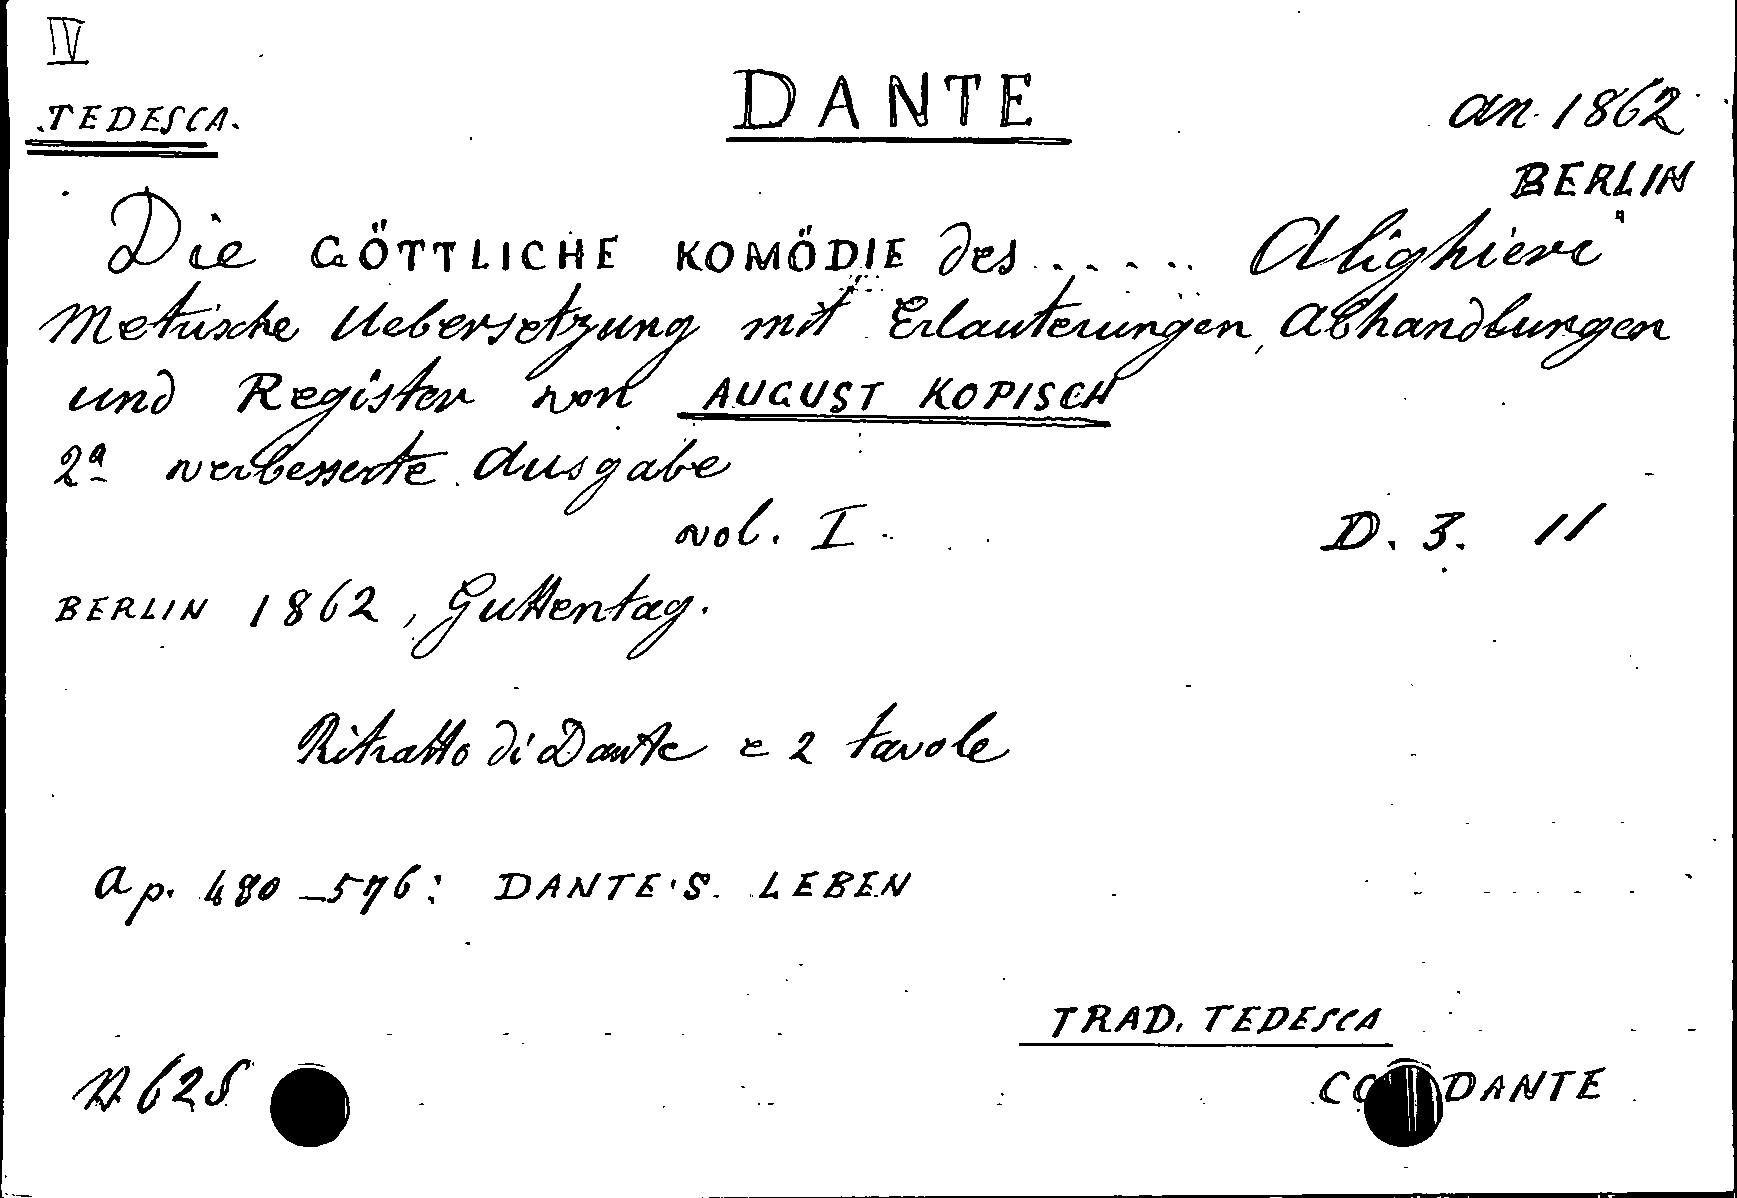 IV
TEDESCA.
DANTE
an. 1862
BERLIN
Die GÖTTLICHE KOMÖDIE des ..... Alighieri
Metrische Uebersetzung mit Erlauterungen, Abhandlungen
und Register von AUGUST KOPISCH
2ª verbesserte Ausgabe
vol. I
D. 3. 11
BERLIN 1862, Guttentag.
Ritratto di Dante e 2 tavole
A p. 480-576: DANTE'S. LEBEN
TRAD. TEDESCA
DANTE